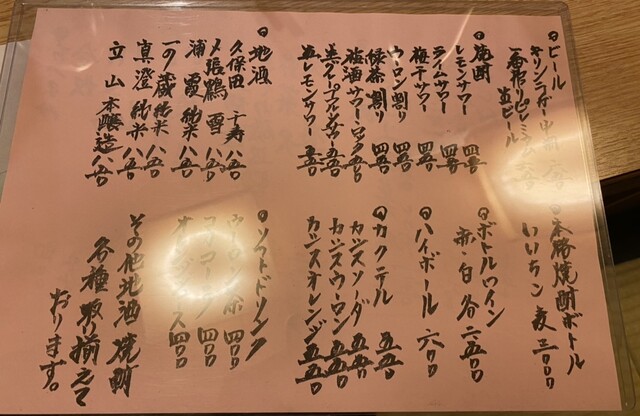 ビール
キリンラガー中瓶
一番搾りプレミアム
生ビール
焼酎
レモンサワー 四五〇
ライムサワー 四五〇
梅干サワー 四五〇
ウーロン割り 四五〇
緑茶割り 四五〇
梅酒サワー・ロック 五五〇
生グレープフルーツサワー 五五〇
生レモンサワー 五五〇
地酒
久保田 千寿 八五〇
〆張鶴 雪 八五〇
浦霞 純米 八五〇
一ノ蔵 純米 八五〇
真澄 純米 八五〇
立山 本醸造 八五〇
本格焼酎ボトル
いいちこ 麦 三〇〇〇
ボトルワイン
赤・白 各 二五〇〇
ハイボール 六〇〇
カクテル
カシスソーダ 五五〇
カシスウーロン 五五〇
カシスオレンジ 五五〇
ソフトドリンク
ウーロン茶 四〇〇
コーク 四〇〇
オレンジジュース 四〇〇
その他地酒 焼酎
各種取り揃えて
おります。